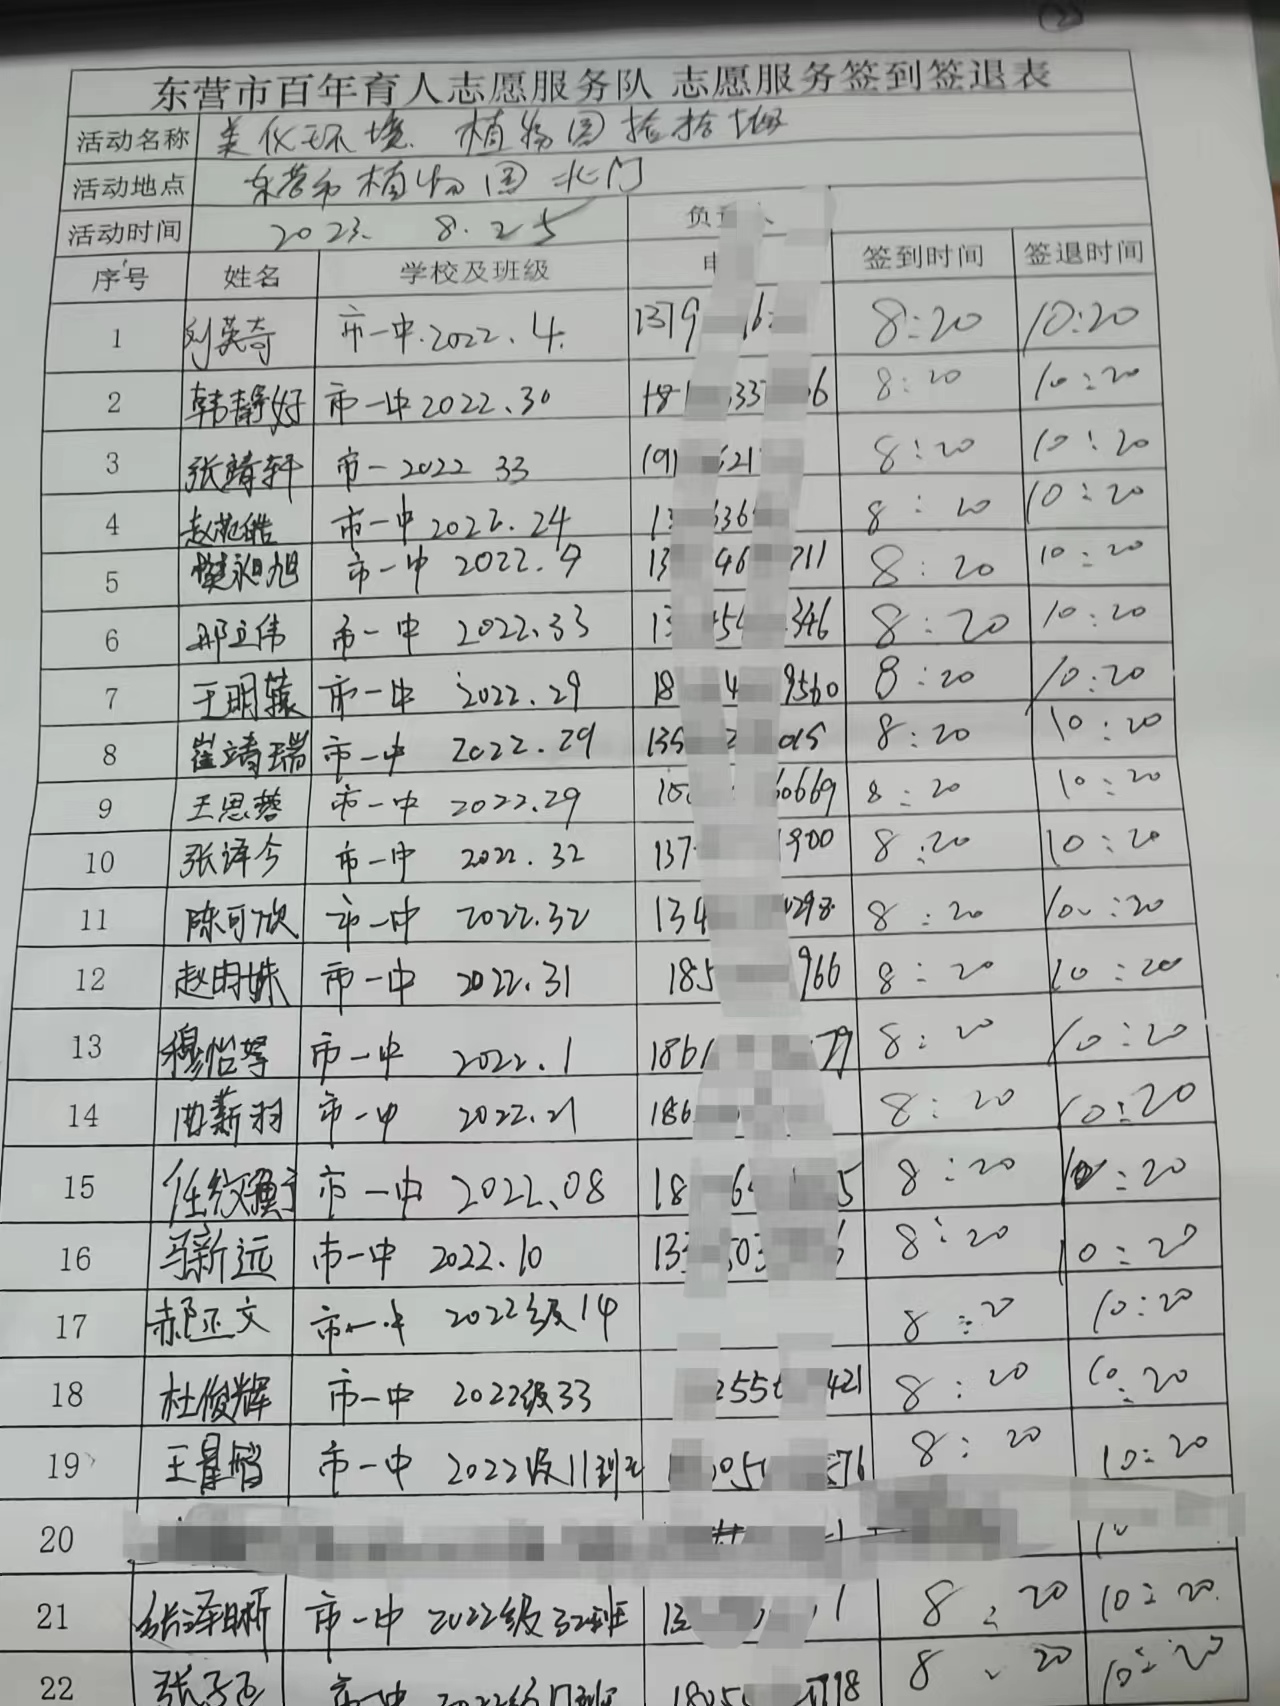 东营市百年育人志愿服务队 志愿服务签到签退表
活动名称 美化环境 植物园捡拾垃圾
活动地点 东营市植物园北门
活动时间 2023. 8.25 负
序号 姓名 学校及班级 签到时间 签退时间
1 刘英奇 市一中.2022.4. 1379 8:20 10:20
2 韩静好 市一中2022.30 8:20 10:20
3 张靖轩 市一2022 33 8:20 10:20
4 市一中2022.24 8:20 10:20
5 樊昶旭 市一中 2022.9 8:20 10:20
6 邢立伟 市一中 2022.33 346 8:20 10:20
7 王明辕 市一中 2022.29 18 9560 8:20 10:20
8 崔靖瑞 市一中 2022.29 8:20 10:20
9 王思蓉 市一中 2022.29 60669 8:20 10:20
10 张译今 市一中 2022.32 137 900 8:20 10:20
11 陈可欣 市一中 2022.32 134 298 8:20 10:20
12 赵明姝 市一中 2022.31 185 966 8:20 10:20
13 穆怡 市一中 2022.1 1861 79 8:20 10:20
14 曲薪羽 市一中 2022.21 186 8:20 10:20
15 市一中 2022.08 18 5 8:20 10:20
16 马新远 市一中 2022.10 13 8:20 10:20
17 郝正文 市一中 2022级14 8:20 10:20
18 杜俊辉 市一中 2022级33 255 421 8:20 10:20
19 王 市一中 2022级11 576 8:20 10:20
20
21 张泽昕 市一中 2022级32班 13 1 8:20 10:20
22 市一中 2022级17班 1805 798 8:20 10:20